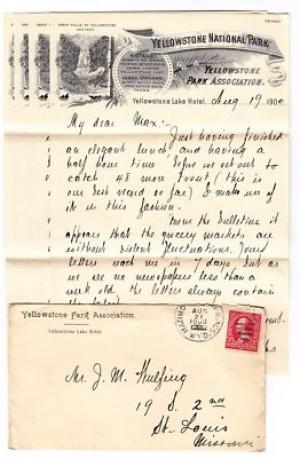 GREAT FALLS OF YELLOWSTONE
YELLOWSTONE NATIONAL PARK
HOTELS:
YELLOWSTONE
PARK ASSOCIATION.
Yellowstone Lake Hotel, Aug 19 1900
My dear Max:-
Just having finished
an elegant lunch and having a
half hour time before we set out to
catch 48 more trout (this is
our best record so far) I make use of
it in this fashion.
From the bulletins it
appears that the grocery markets are
without violent fluctuations. Your
letters reach me in 7 days but as
we see no newspapers less than a
week old the letters always contain
the latest
Yellowstone Park Association.
Yellowstone Lake Hotel.
AUG
21
1900
WYO.
Mr. J. M. Kulfing
19 S. 2nd
St. Louis
Missouri